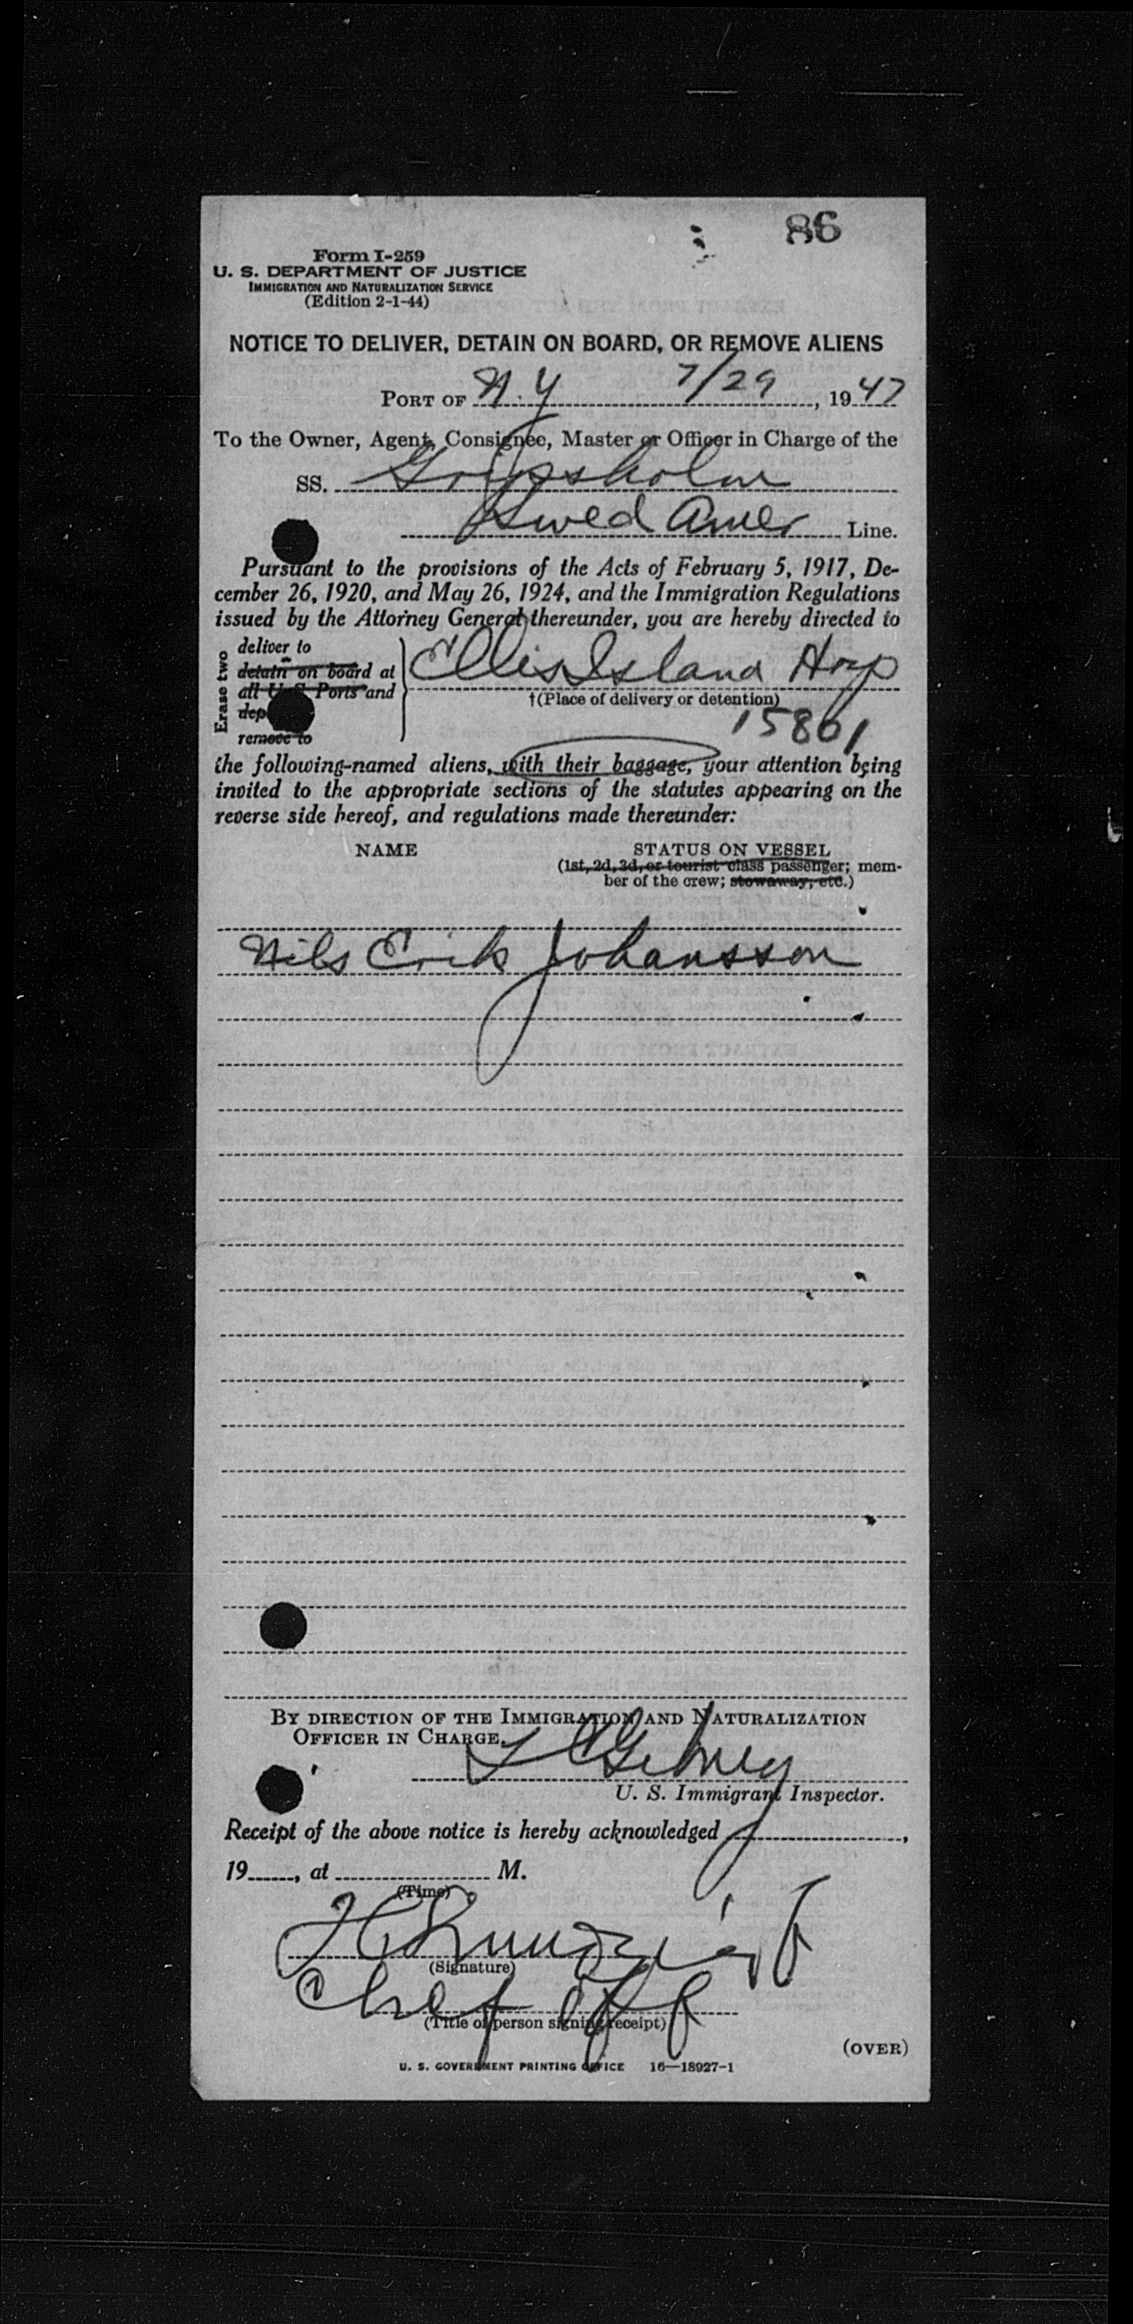 86
Form I-259
U. S. DEPARTMENT OF JUSTICE
IMMIGRATION AND NATURALIZATION SERVICE
(Edition 2-1-44)
NOTICE TO DELIVER, DETAIN ON BOARD, OR REMOVE ALIENS
PORT OF N.Y 7/29, 1947
To the Owner, Agent, Consignee, Master or Officer in Charge of the
SS. Gripsholm
Swed Amer Line.
Pursuant to the provisions of the Acts of February 5, 1917, De-
cember 26, 1920, and May 26, 1924, and the Immigration Regulations
issued by the Attorney General thereunder, you are hereby directed to
Erase two
deliver to
detain on board at
all U. S. Ports and
dep
remove to
Ellis Island Hosp
†(Place of delivery or detention)
15801
the following-named aliens, with their baggage, your attention being
invited to the appropriate sections of the statutes appearing on the
reverse side hereof, and regulations made thereunder:
NAME STATUS ON VESSEL
(1st, 2d, 3d, or tourist class passenger; mem-
ber of the crew; stowaway, etc.)
Nils Erik Johansson
BY DIRECTION OF THE IMMIGRATION AND NATURALIZATION
OFFICER IN CHARGE.
U. S. Immigrant Inspector.
Receipt of the above notice is hereby acknowledged ,
19 , at M.
(Time)
(Signature)
Chef off
(Title of person signing receipt)
(OVER)
U. S. GOVERNMENT PRINTING OFFICE 16—18927-1